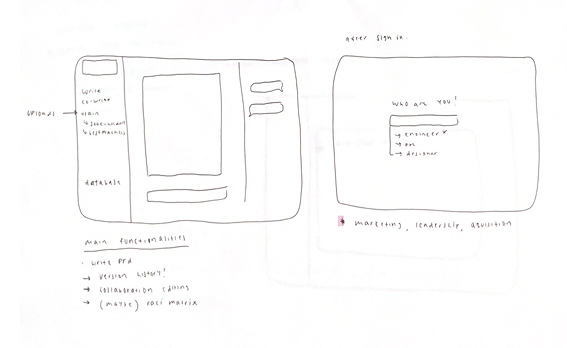 after sign in.
write
co-write
uploads
train
database
who are you?
→ engineer ✓
→ pm
→ designer
→ marketing, leadership, aquisition
main functionalities
· write prd
→ version history!
→ collaboration editing
→ (maybe) raci matrix